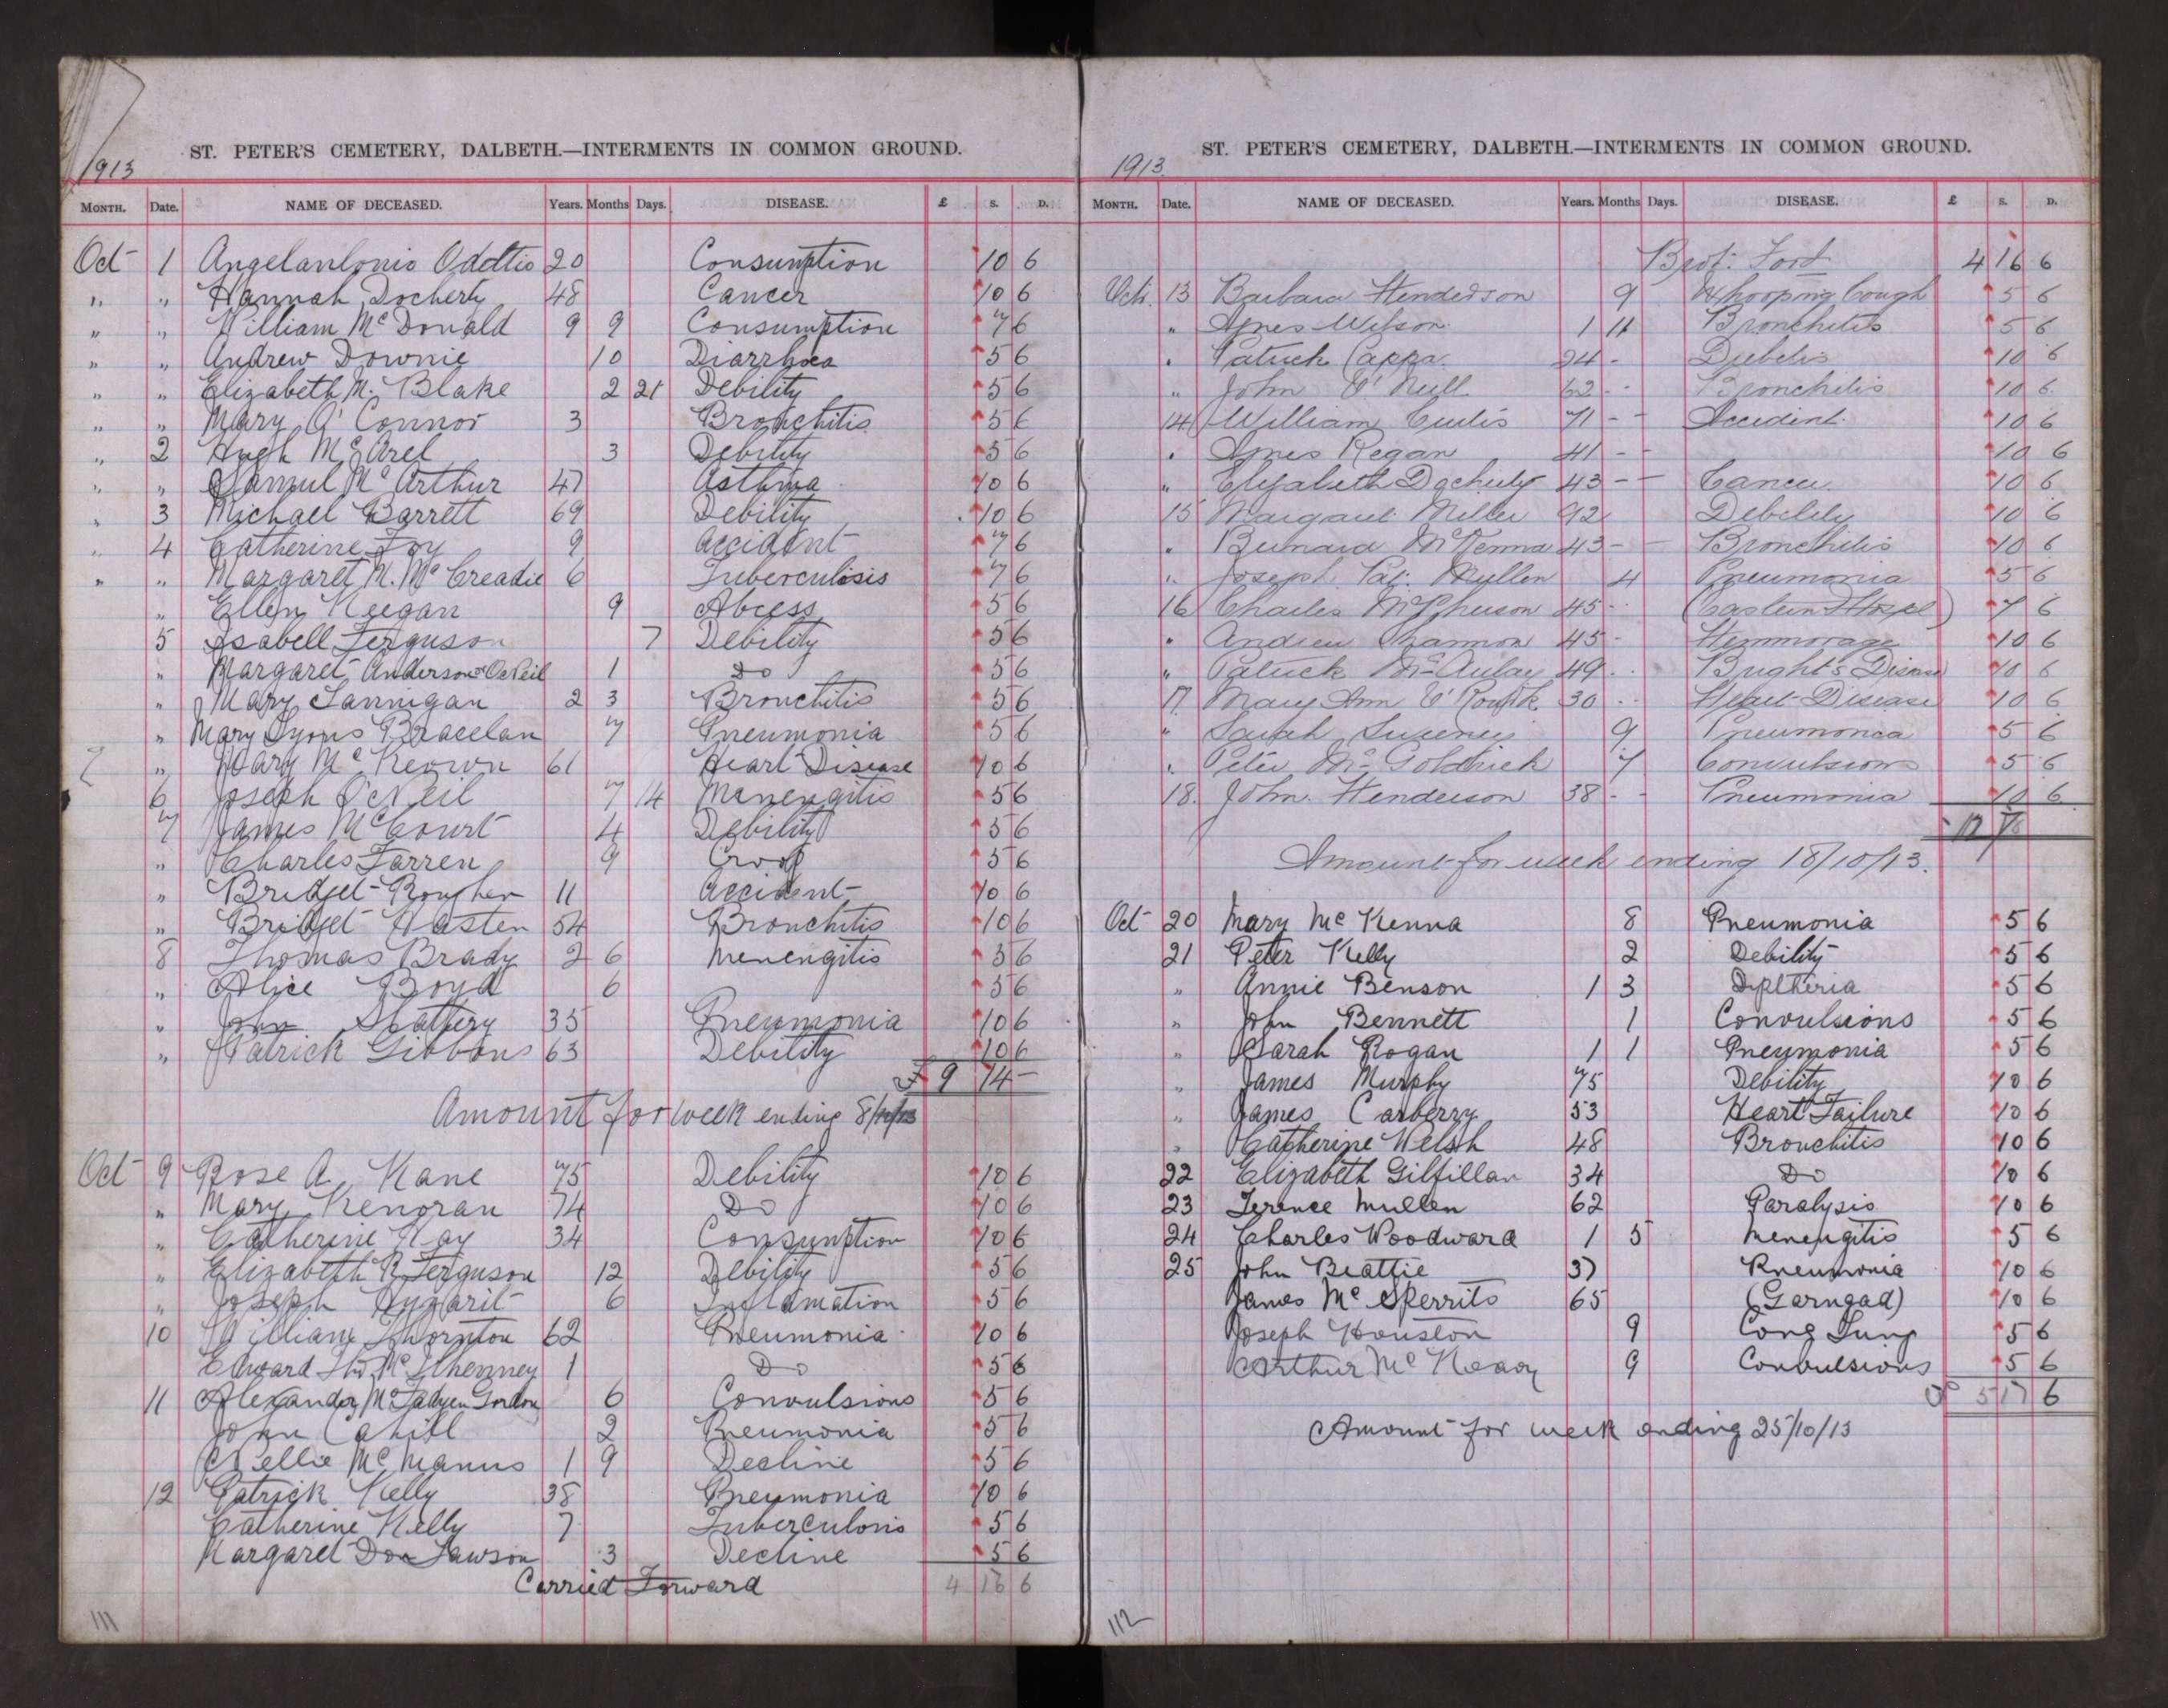 ST. PETER'S CEMETERY, DALBETH.—INTERMENTS IN COMMON GROUND.
1913
MONTH. Date. NAME OF DECEASED. Years. Months Days. DISEASE. £ S. D.
Oct 1 Angelantonio 20 Consumption 10 6
" " Hannah Docherty 48 Cancer 10 6
" " William Mc Donald 9 9 Consumption 7 6
" " Andrew Downie 10 Diarrhoea 5 6
" " Elizabeth M. Blake 2 21 Debility 5 6
" " Mary O'Connor 3 Bronchitis 5 6
" 2 Hugh 3 Debility 5 6
" " Samuel Mc Arthur 47 Asthma 10 6
" 3 Michael Barrett 69 Debility 10 6
" 4 Catherine Foy 9 Accident 7 6
" " Margaret N. Mc Creadie 6 Tuberculosis 7 6
" Ellen Keegan 9 Abcess 5 6
5 Isabell Ferguson 7 Debility 5 6
" Margaret Anderson or O'Neil 1 Do 5 6
" Mary Lannigan 2 3 Bronchitis 5 6
" Mary Lyons Bracelan 7 Pneumonia 5 6
" Mary Mc Keown 61 Heart Disease 10 6
6 Joseph O'Neil 7 14 Menengitis 5 6
7 James Mc Court 4 Debility 5 6
" Charles Farren 9 Croop 5 6
" Bridget 11 Accident 10 6
" Bridget Hasten 54 Bronchitis 10 6
8 Thomas Brady 2 6 Menengitis 5 6
" Alice Boyd 6 5 6
" John Slattery 35 Pneumonia 10 6
" Patrick Gibbons 63 Debility 10 6
£ 9 14 —
Amount for week ending 8/10/13
Oct 9 Rose A. Kane 75 Debility 10 6
" Mary Kenoran 74 Do 10 6
" Catherine Kay 34 Consumption 10 6
" Elizabeth R. Ferguson 12 Debility 5 6
" Joseph 6 Inflamation 5 6
10 William Thornton 62 Pneumonia 10 6
Edward Thos. Mc Ilhenney 1 Do 5 6
11 Alexander McFadyen Gordon 6 Convulsions 5 6
John Cahill 2 Pneumonia 5 6
Nellie Mc Manus 1 9 Decline 5 6
12 Patrick Kelly 38 Pneumonia 10 6
Catherine Kelly 7 Tuberculosis 5 6
Margaret Don Lawson 3 Decline 5 6
Carried Forward 4 16 6
111
ST. PETER'S CEMETERY, DALBETH.—INTERMENTS IN COMMON GROUND.
1913.
MONTH. Date. NAME OF DECEASED. Years. Months Days. DISEASE. £ S. D.
Brot. Ford 4 16 6
Oct. 13 Barbara Henderson 9 Whooping Cough 5 6
" Agnes Wilson 1 11 Bronchitis 5 6
" Patrick Cappa 24 - Diebetis 10 6
" John O'Neill 62 - - Bronchitis 10 6
14 William Curtis 71 - - Accident. 10 6
" Agnes Regan 41 - - 10 6
" Elizabeth Docherty 43 - - Cancer. 10 6
15 Margaret Miller 92 Debility 10 6
" Bernard McKenna 43 - - Bronchitis 10 6
" Joseph Pat. Mullen 4 Pneumonia 5 6
16 Charles McPherson 45 - - (Eastern Hospl) 7 6
" Andrew Shannon 45 - Hemmorage 10 6
" Patrick McAulay 49 - - Bright's Disease 10 6
17 Mary Ann O'Rourk 30 - - Heart Disease 10 6
" Sarah Sweeney 9 Pneumonia 5 6
" Peter McGoldrick 7 Convulsions 5 6
18. John. Henderson 38 - - Pneumonia 10 6
Amount for week ending 18/10/13.
Oct 20 Mary Mc Kenna 8 Pneumonia 5 6
21 Peter Kelly 2 Debility 5 6
" Annie Benson 1 3 Diptheria 5 6
" John Bennett 1 Convulsions 5 6
" Sarah Rogan 1 1 Pneumonia 5 6
" James Murphy 75 Debility 10 6
" James Carberry 53 Heart Failure 10 6
" Catherine Welsh 48 Bronchitis 10 6
22 Elizabeth Gilfillan 34 Do 10 6
23 Terence Mullen 62 Paralysis 10 6
24 Charles Woodward 1 5 Menengitis 5 6
25 John Beattie 37 Pneumonia 10 6
James Mc Sperrits 65 (Garngad) 10 6
Joseph Houston 9 Cong Lung 5 6
Arthur Mc Neary 9 Convulsions 5 6
5 17 6
Amount for week ending 25/10/13
112